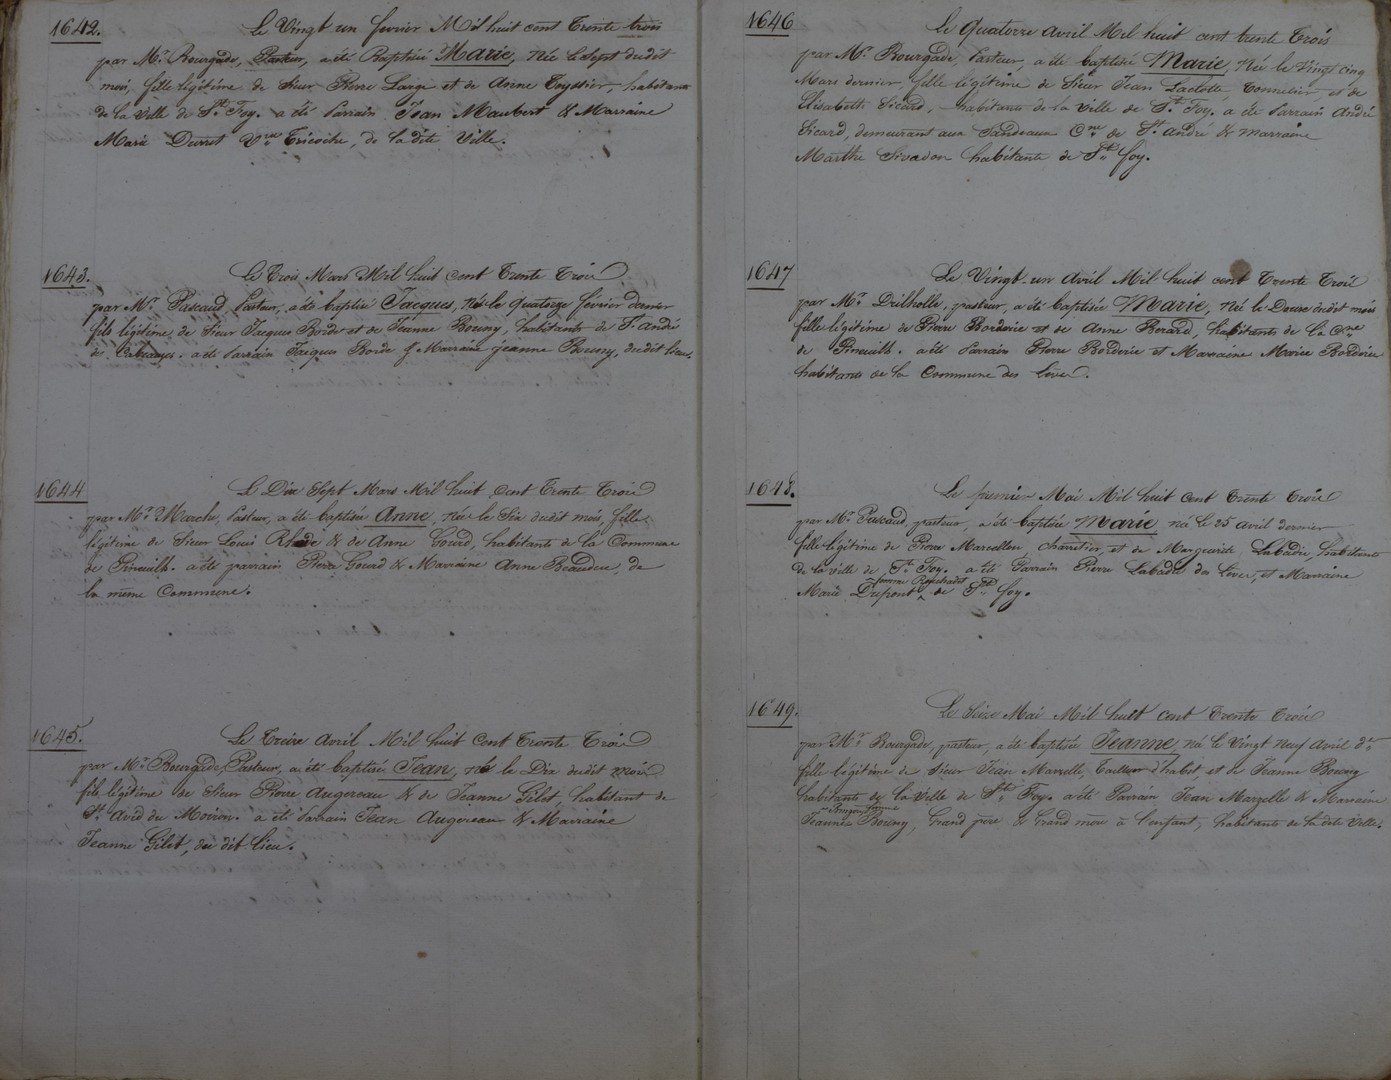 1642.
Le Vingt un fevrier Mil huit cent Trente trois
par Mr. Bourgade, Pasteur, a été Baptisée Marie, Née le Sept dudit
mois, fille légitime de Sieur Pierre Large et de Anne Teyssier, habitants
de la Ville de Ste. Foy. a été Parrain Jean Maubert & Marraine
Marie Durret Vve Tricoche, de la dite Ville.
1643.
Le Trois Mars Mil huit cent Trente Trois
par Mr. Puxaud Pasteur, a été baptisé Jacques, Né le quatorze février dernier
fils légitime de Sieur Jacques Borde et de Jeanne Bouny, habitants de St. André
de Cabauzes. a été Parrain Jacques Borde & Marraine jeanne Bouny, dudit lieu.
1644
Le Dix Sept Mars Mil huit Cent Trente Trois
par Mr. Pasteur, a été baptisée Anne, Née le Six dudit mois, fille
légitime de Sieur Louis & de Anne Gourd, habitants de la Commune
de Pineuilh. a été parrain Pierre Gourd & Marraine Anne Beaudou, de
la même Commune.
1645.
Le Treize Avril Mil huit Cent Trente Trois
par Mr. Bourgade, Pasteur, a été baptisé Jean, né le Dix dudit Mois
fils légitime de Sieur Pierre Augereau & de Jeanne Gilet, habitant de
St. Avid du Moiron. a été Parrain Jean Augereau & Marraine
Jeanne Gilet, du dit lieu.
1646
Le quatorze Avril Mil huit cent trente Trois
par Mr. Bourgade, Pasteur, a été baptisée Marie, Née le Vingt cinq
Mars dernier fille légitime de Sieur Jean Lacotte Tonnelier et de
Elisabeth Sicard, habitants de la Ville de Ste. Foy. a été Parrain André
Sicard, demeurant aux Cne de St. André & Marraine
Marthe Sivadon habitante de Ste. foy.
1647
Le Vingt un Avril Mil huit cent Trente Trois
par Mr. Drilholle, pasteur, a été baptisée Marie, Née le Douze dudit mois
fille légitime de Pierre Borderie et de Anne Berard, habitants de la Cne
de Pineuilh. a été Parrain Pierre Borderie et Marraine Marie Borderie
habitants de la Commune des Lèves.
1648.
Le premier Mai Mil huit Cent Trente Trois
par Mr. Puxaud, pasteur, a été baptisée Marie, né le 25 avril dernier
fille légitime de Pierre Marcellon, charretier, et de Marguerite Labadie, habitants
de la ville de Ste. Foy. a été Parrain Pierre Labadie des Lèves, et Marraine
Marie Dupont femme de Ste. foy.
1649.
Le Seize Mai Mil huit cent Trente Trois
par Mr. Bourgade, pasteur, a été baptisée Jeanne, né le Vingt Neuf Avril der
fille légitime de Sieur Jean Marzelle, Tailleur d'habit, et de Jeanne Bouny
habitants de la Ville de Ste. Foy. a été Parrain Jean Marzelle & Marraine
Jeanne Bouny, Grand père & Grand mère à l'enfant, habitants de la dite Ville.